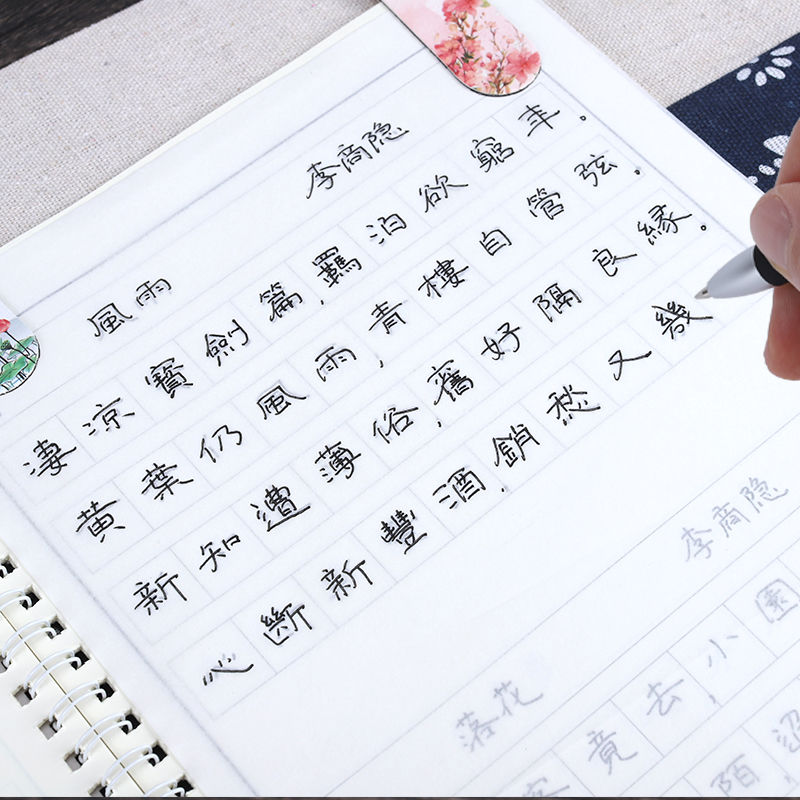 李商隐
風雨
淒涼寶劍篇,羈泊欲窮年。
黃葉仍風雨,青樓自管弦。
新知遭薄俗,舊好隔良緣。
心斷新豐酒,銷愁又幾
李商隐
落花
客竟去,小園
陌,迢